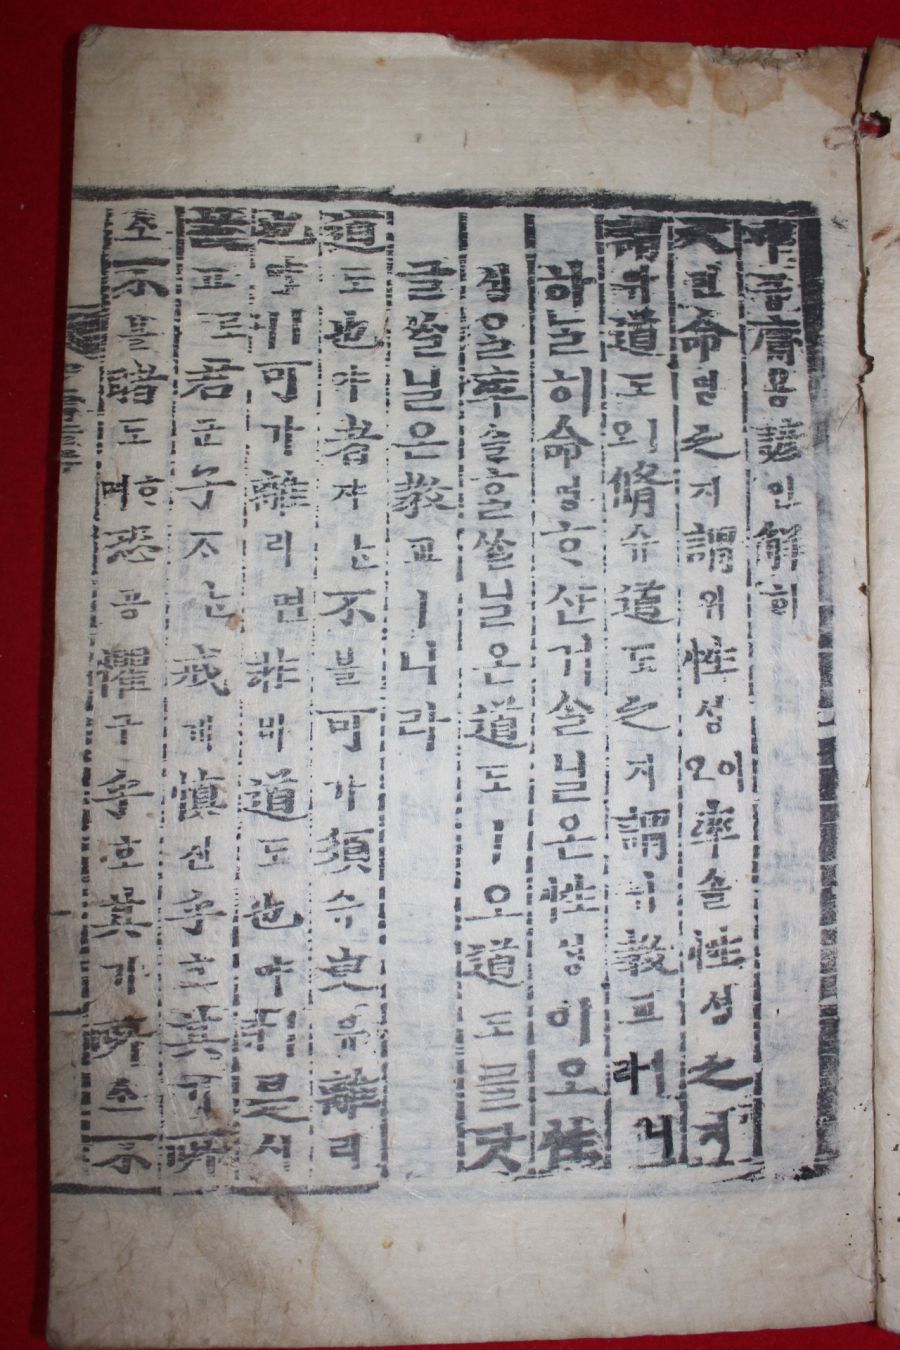 中듕庸용諺언解ᄒᆡ
天텬命명之지謂위性셩이오率솔性셩之지
謂위道도ㅣ오脩슈道도之지謂위敎교ㅣ니라
하ᄂᆞᆯ히命명ᄒᆞ산거슬닐온性셩이오性
셩을率솔흘쓸닐온道도ㅣ오道도를닷
글쓸닐은敎교ㅣ니라
道도也야者쟈ᄂᆞᆫ不블可가須슈臾유離리
也야ㅣ니可가離리면非비道도也야ㅣ라是시
故고로君군子ᄌᆞᄂᆞᆫ戒계愼신乎호其기所
소不블睹도ᄒᆞ며恐공懼구乎호其기所소不